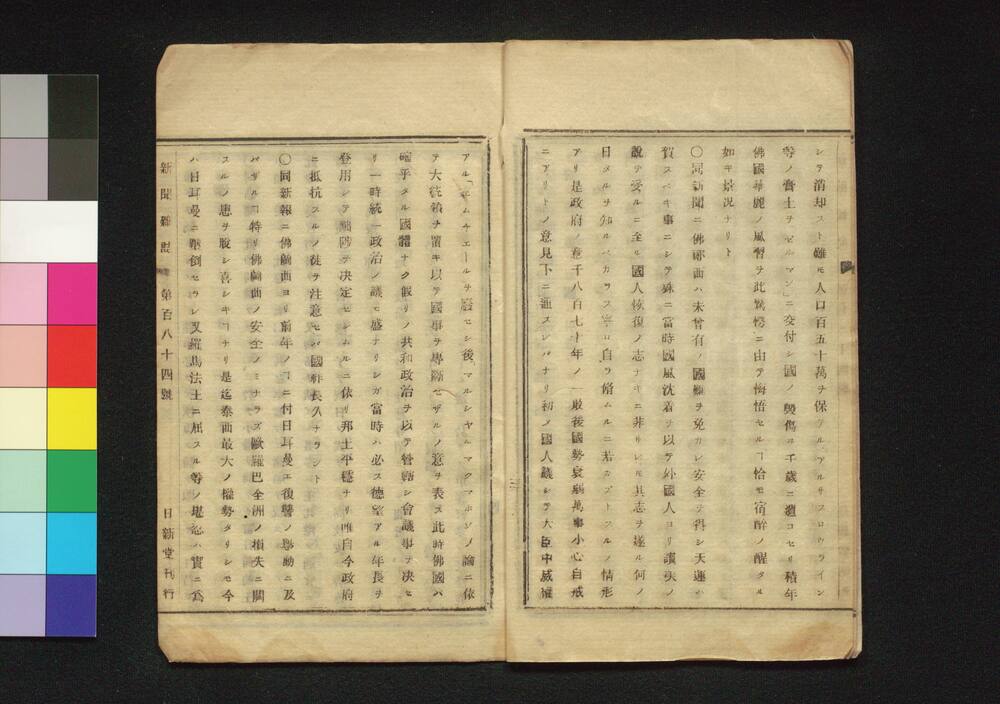 シテ消却スト雖モ人口百五十萬ヲ保テルアルサスロウライン
等ノ膏土ヲゼルマン」ニ交付シ國ノ毀傷ヲ千歳ニ遺コセリ積年
佛國華麗ノ風習ヲ此驚愕ニ由テ悔悟セルヿ恰モ宿醉ノ醒タル
如キ景况ナリト
〇同新聞ニ佛郎西ハ未曾有ノ國難ヲ免カレ安全ヲ得シ天運ハ
賀スベキ事ニシテ殊ニ當時國風沈着ヲ以テ外國人ヨリ讃美ノ
說ヲ受ルニ至ル國人恢復ノ志ナキニ非リレモ其志ヲ遂ル何ノ
日メルヲ知ルベカラス寧ロ自ラ脩ムルニ若ズトスルノ情形
アリ是政府ノ意千八百七十年ノ一敗後國勢衰弱萬事小心自戒
ニアリトノ意見下ニ通スレバナリ初メ國人議シテ大臣中威權
アル「チエール」ヲ廢セシ後マルシヤルマクマホンノ論ニ依
テ大統領ヲ置キ以テ國事ヲ專斷セザルノ意ヲ表ス此時佛國ハ
確乎タル國體ナク假リノ共和政治ヲ以テ管轄シ會議事ヲ决セ
リ一時統一政治ノ議モ盛ナリシガ當時ハ必ス德望アル年長ヲ
登用シテ黜陟ヲ决定セシムルニ依リ邦土平穩ナリ唯自今政府
ニ抵抗スルノ徒ヲ注意セバ國祚長久ナラント
〇同新報ニ佛蘭西ヨリ前年ノヿニ付日耳曼エ復讐ノ擧動ニ及
バザルヿ特リ佛蘭西ノ安全ノミナラズ歐羅巴全洲ノ損失ニ關
スルノ患ヲ脫シ喜シキヿナリ是迄泰西最大ノ權勢タリシモ今
ハ日耳曼ニ壓倒セラレ又羅馬法王ニ屈スル等ノ堪忍ハ實ニ爲
新聞雜誌 第百八十四號 日新堂刊行